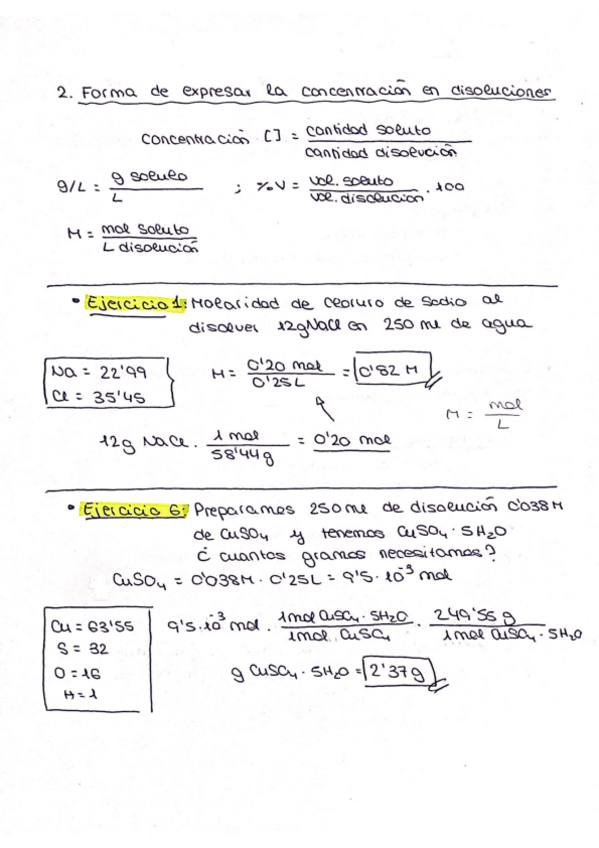 2. Forma de expresar la concentración en disoluciones
Concentración [] = cantidad soluto / cantidad disolución
g/L = g soluto / L ; %V = vol. soluto / vol. disolución · 100
M = mol soluto / L disolución
• Ejercicio 1: Molaridad de cloruro de sodio al
disolver 12g NaCl en 250 ml de agua
Na = 22'99
Cl = 35'45
M = 0'20 mol / 0'25L = 0'82 M
M = mol / L
12g NaCl · 1 mol / 58'44g = 0'20 mol
• Ejercicio 6: Preparamos 250 ml de disolución 0'038M
de CuSO4 y tenemos CuSO4 · 5H2O
¿ cuantos gramos necesitamos?
CuSO4 = 0'038M · 0'25L = 9'5 · 10⁻³ mol
Cu = 63'55
S = 32
O = 16
H = 1
9'5·10⁻³ mol · 1mol CuSO4 · 5H2O / 1mol CuSO4 · 249'55 g / 1mol CuSO4 · 5H2O
g CuSO4 · 5H2O = 2'37g